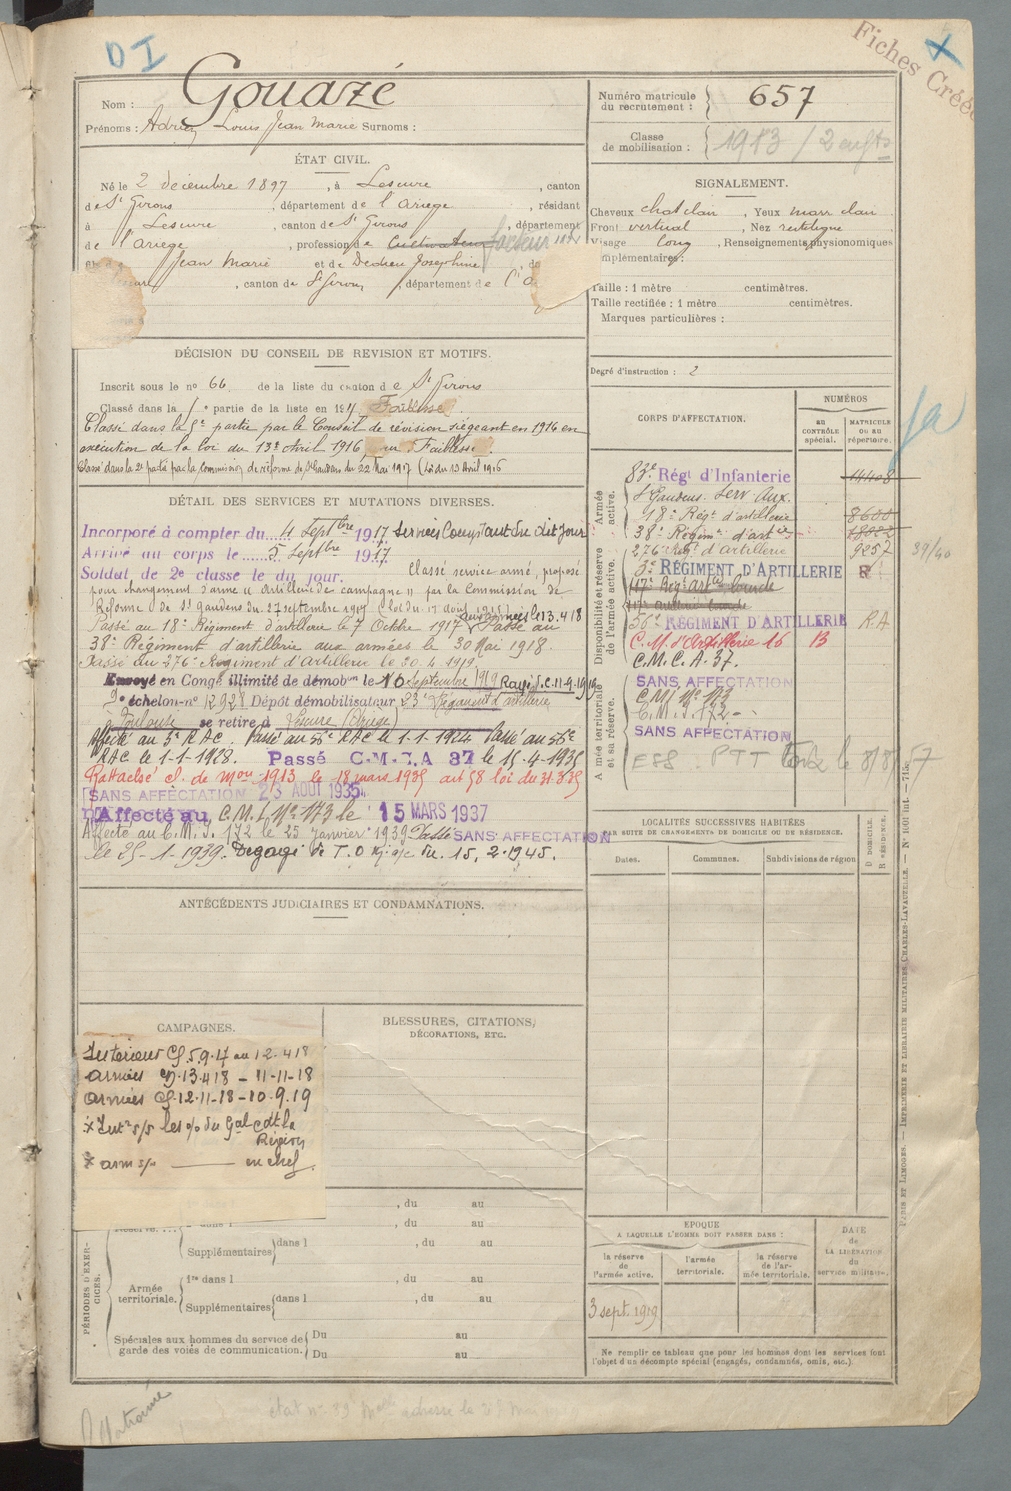 DI
Fiches Créé
Nom : Gouazé
Prénoms : Adrien Louis Jean Marie Surnoms :
Numéro matricule du recrutement : 657
Classe de mobilisation : 1913 / 2 enfts
ÉTAT CIVIL.
Né le 2 décembre 1897, à Lescure, canton
de St Girons, département de l'Ariège, résidant
à Lescure, canton de St Girons, département
de l'Ariège, profession de Cultivateur facteur
Jean Marie et de Dedieu Joséphine
, canton de St Girons, département de l'A
SIGNALEMENT.
Cheveux chat clair, Yeux marr clair
Front vertical, Nez rectiligne
Visage long, Renseignements physionomiques
mplémentaires:
Taille : 1 mètre centimètres.
Taille rectifiée : 1 mètre centimètres.
Marques particulières :
Degré d'instruction : 2
DÉCISION DU CONSEIL DE REVISION ET MOTIFS.
Inscrit sous le no 66 de la liste du canton de St Girons
Classé dans la partie de la liste en 191 Faiblesse
Classé dans la 5e partie par le Conseil de révision siégeant en 1916 en
exécution de la loi du 13 Avril 1916, Faiblesse.
Classé dans la 2e partie par la Commission de réforme de St Gaudens du 22 Mai 1917 (Loi du 13 Avril 1916
DÉTAIL DES SERVICES ET MUTATIONS DIVERSES.
Incorporé à compter du 4 Septbre 1917 Services Comptant du dit jour
Arrivé au corps le 5 Septbre 1917
Soldat de 2e classe le du jour. Classé service armé, proposé
pour changement d'arme "artillerie de campagne" par la Commission de
Réforme de St Gaudens du 27 septembre 1917
Passé au 18e Régiment d'artillerie le 7 Octbre 1917 aux armées le 13.4.18 Passé au
38e Régiment d'artillerie aux armées le 30 Mai 1918.
Passé au 276e Régiment d'Artillerie le 30.4.1919.
Envoyé en Congé illimité de démobon le 10 Septembre 1919
9e échelon no 12928 Dépôt démobilisateur 23e Régiment d'artillerie
à Toulouse se retire à Lescure (Ariège)
Affecté au 3e RAC. Passé au 56e RAC le 1-1-1924 Passé au 56e
RAC le 1-1-1928. Passé C.M.C.A 37 le 15-4-1935
Rattaché cl. de mon 1913 le 18 mars 1935 art 58 loi du 31.3.28
SANS AFFECTATION 23 AOUT 1935
Affecté au C.M.I. No 173 le 15 MARS 1937
Affecté au C.M.I. 172 le 25 janvier 1939 Passé SANS AFFECTATION
le 25-1-1939. Dégagé de T.O du 15.2.1945.
CORPS D'AFFECTATION.
NUMÉROS
au CONTRÔLE spécial.
MATRICULE ou au répertoire.
Armée active.
Disponibilité et réserve de l'armée active.
Armée territoriale et sa réserve.
83e Régt d'Infanterie 14408
St Gaudens. Serv. Aux.
18e Régt d'artillerie 8600
38e Régim. d'artie 18002
276e Régt d'Artillerie 9257
39/40
3e RÉGIMENT D'ARTILLERIE R
117e Régt artie lourde
117e artillerie lourde
56e RÉGIMENT D'ARTILLERIE R.A
C.M. d'Artillerie 16 B
C.M.C.A. 37.
SANS AFFECTATION
C.M.I. No 173
C.M.I. 172
SANS AFFECTATION
ESS. PTT le 8/8/57
ja
LOCALITÉS SUCCESSIVES HABITÉES
PAR SUITE DE CHANGEMENTS DE DOMICILE OU DE RÉSIDENCE.
Dates. Communes. Subdivisions de région
D DOMICILE.
R RÉSIDENCE.
ANTÉCÉDENTS JUDICIAIRES ET CONDAMNATIONS.
CAMPAGNES.
Intérieur CS. 5.9.17 au 12.4.18
Armées CD. 13.4.18 - 11-11-18
Armées CS. 12-11-18 - 10.9.19
Int s/s les o/o du Gal Cdt la
Région
arm s/o en chef
BLESSURES, CITATIONS,
DÉCORATIONS, ETC.
PÉRIODES D'EXERCICES.
, du au
Réserve. dans l , du au
Supplémentaires dans l , du au
Armée territoriale.
1re dans l , du au
Supplémentaires dans l , du au
Spéciales aux hommes du service de garde des voies de communication. Du au
Du au
EPOQUE
A LAQUELLE L'HOMME DOIT PASSER DANS :
la réserve de l'armée active.
l'armée territoriale.
la réserve de l'armée territoriale.
DATE de LA LIBÉRATION du service militaire.
3 sept. 1919
Ne remplir ce tableau que pour les hommes dont les services font
l'objet d'un décompte spécial (engagés, condamnés, omis, etc.)
PARIS ET LIMOGES. — IMPRIMERIE ET LIBRAIRIE MILITAIRES CHARLES-LAVAUZELLE. —